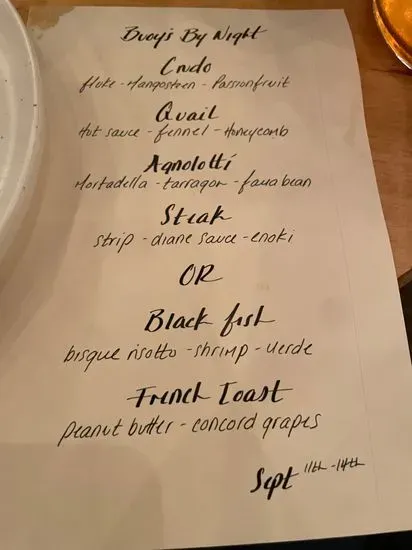 Buoy's By Night
Crudo
fluke - Mangosteen - Passionfruit
Quail
Hot sauce - fennel - Honeycomb
Agnolotti
Mortadella - tarragon - fava bean
Steak
strip - diane sauce - enoki
OR
Black fish
bisque risotto - shrimp - verde
French Toast
peanut butter - concord grapes
Sept 11th - 14th